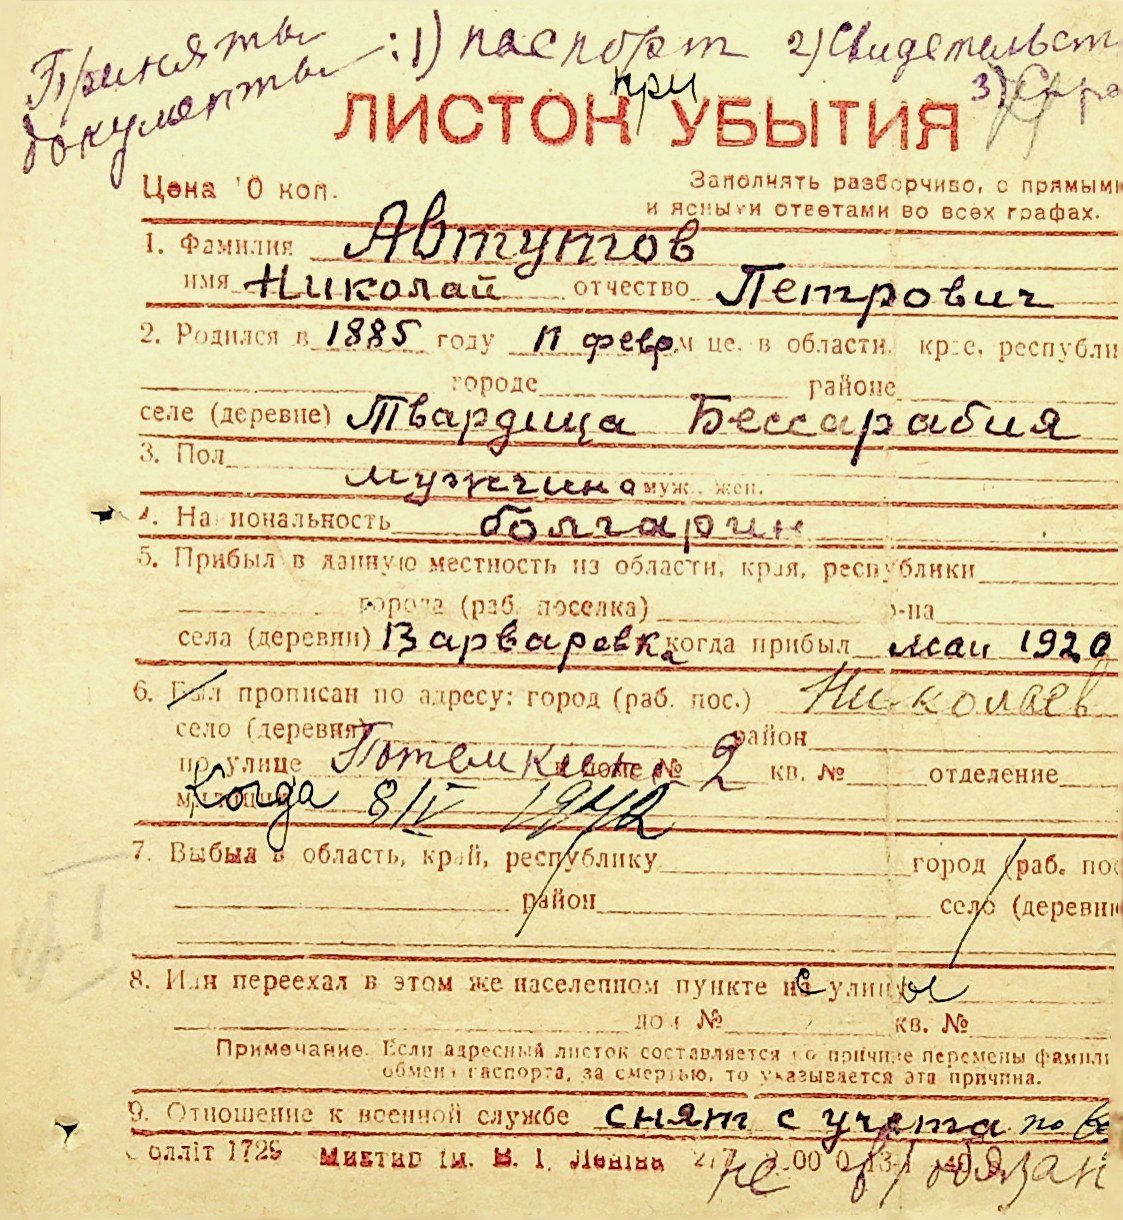 Приняты документы: 1) паспорт 2) Свидетельст
3) Спра
при
ЛИСТОК УБЫТИЯ
Цена 10 коп.
Заполнять разборчиво, с прямыми
и ясными ответами во всех графах.
1. Фамилия Автутов
имя Николай отчество Петрович
2. Родился в 1885 году 17 февр. м-це, в области, крае, республи
городе районе
селе (деревне) Твардица Бессарабия
3. Пол
мужчина муж., жен.
4. Национальность болгарин
5. Прибыл в данную местность из области, края, республики
города (раб. поселка) р-на
села (деревни) Варваревка когда прибыл маи 1920
6. Был прописан по адресу: город (раб. пос.) Николаев
село (деревня) район
по улице Потемкинс в доме № 2 кв. № отделение
милиции Когда 8/IV 1942
7. Выбыл в область, край, республику город (раб. пос
район село (деревню
8. Или переехал в этом же населенном пункте на с улицу ы
дом № кв. №
Примечание. Если адресный листок составляется по причине перемены фамили
обмена паспорта, за смертью, то указывается эта причина.
9. Отношение к военной службе снят с учета по во
Облліт 1729 Миктип ім. В. І. Леніна
не в/обязан